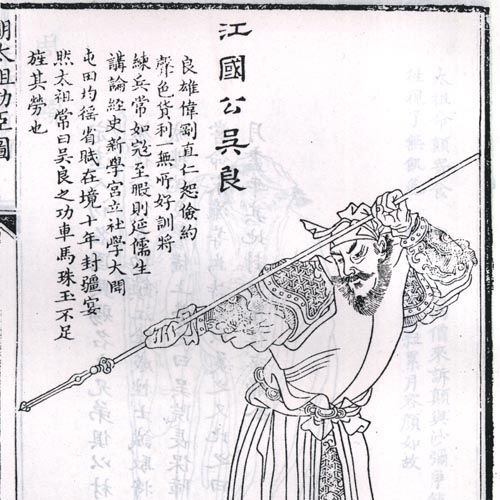 江國公吳良
良雄偉剛直仁恕儉約
聲色貨利一無所好訓將
練兵常如寇至暇則延儒生
講論經史新學宮立社學大開
屯田均徭省賦在境十年封疆宴
然太祖常曰吳良之功車馬珠玉不足
旌其勞也
明太祖功臣圖